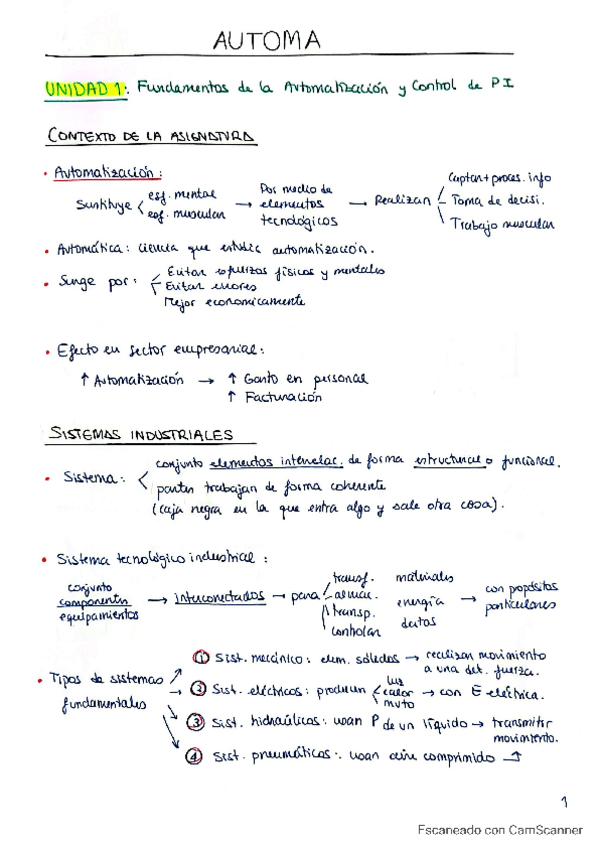 AUTOMA
UNIDAD 1: Fundamentos de la Automatización y Control de PI
CONTEXTO DE LA ASIGNATURA
• Automatización:
Sustituye < esf. mental
esf. muscular
→ Por medio de elementos tecnológicos
→ Realizan
Captan + proces. info
Toma de decisi.
Trabajo muscular
• Automática: ciencia que estudia automatización.
• Surge por:
Evitar esfuerzos físicos y mentales
Evitar errores
Mejor económicamente
• Efecto en sector empresarial:
↑ Automatización → ↑ Gasto en personal
↑ Facturación
SISTEMAS INDUSTRIALES
• Sistema: <
conjunto elementos interrelac. de forma estructural o funcional.
partes trabajan de forma coherente
(caja negra en la que entra algo y sale otra cosa).
• Sistema tecnológico industrial:
conjunto
componentes
equipamientos
→ interconectados → para
transf.
almac.
transp.
controlan
materiales
energía
datos
→ con propósitos
particulares
• Tipos de sistemas
fundamentales
① Sist. mecánico: elem. sólidos → realizan movimiento
a una det. fuerza.
② Sist. eléctricos: producen < luz
calor
→ con E eléctrica.
③ Sist. hidraúlicos: usan P de un líquido → transmitir
movimiento.
④ Sist. pneumáticos: usan aire comprimido
1
Escaneado con CamScanner